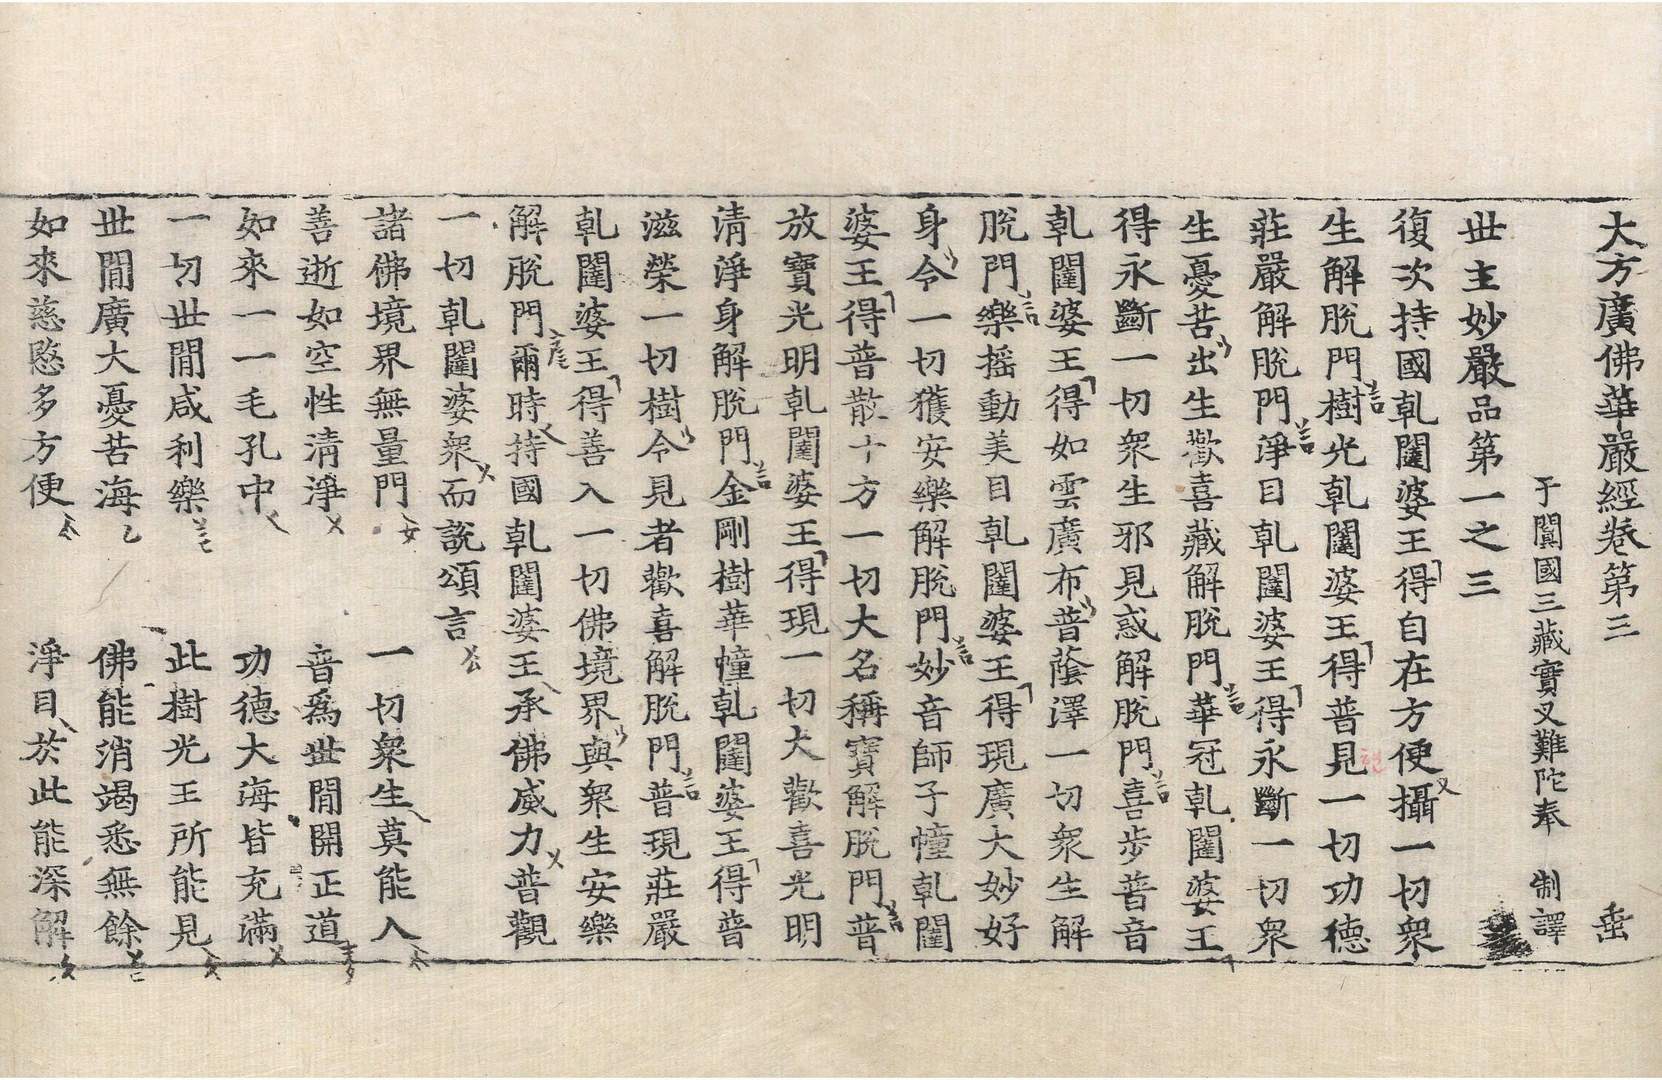 大方廣佛華嚴經卷第三　垂
于闐國三藏實叉難陀奉　制譯
世主妙嚴品第一之三
復次持國乹闥婆王得自在方便攝一切衆
生解脫門樹光乹闥婆王得普見一切功德
莊嚴解脫門淨目乹闥婆王得永斷一切衆
生憂苦出生歡喜藏解脫門華冠乹闥婆王
得永斷一切衆生邪見惑解脫門喜步普音
乹闥婆王得如雲廣布普蔭澤一切衆生解
脫門樂搖動美目乹闥婆王得現廣大妙好
身令一切獲安樂解脫門妙音師子幢乹闥
婆王得普散十方一切大名稱寶解脫門普
放寶光明乹闥婆王得現一切大歡喜光明
清淨身解脫門金剛樹華幢乹闥婆王得普
滋榮一切樹令見者歡喜解脫門普現莊嚴
乹闥婆王得善入一切佛境界與衆生安樂
解脫門爾時持國乹闥婆王承佛威力普觀
一切乹闥婆衆而說頌言
諸佛境界無量門　一切衆生莫能入
善逝如空性清淨　普爲世間開正道
如來一一毛孔中　功德大海皆充滿
一切世間咸利樂　此樹光王所能見
世間廣大憂苦海　佛能消竭悉無餘
如來慈愍多方便　淨目於此能深解